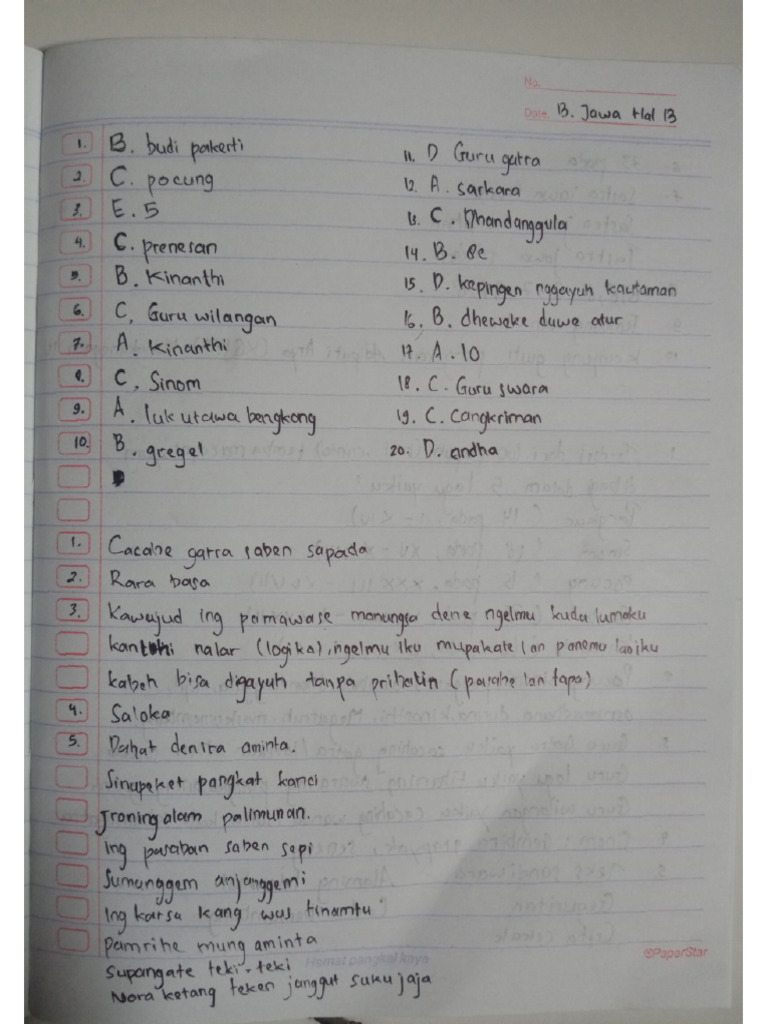 No.
Date. B. Jawa Hal 13
1. B. budi pakerti
2. C. pocung
3. E. 5
4. C. prenesan
5. B. Kinanthi
6. C. Guru wilangan
7. A. Kinanthi
8. C. Sinom
9. A. luk utawa bengkong
10. B. gregel
11. D Guru gatra
12. A. sarkara
13. C. Dhandanggula
14. B. 8e
15. D. kepingen nggayuh kautaman
16. B. dheweke duwe atur
17. A. 10
18. C. Guru swara
19. C. Cangkriman
20. D. andha
1. Cacahe gatra saben sapada
2. Rara basa
3. Kawujud ing pamawase manungsa dene ngelmu kudu lumaku
kanthi nalar (logika), ngelmu iku mupakate lan panemu laniku
kabeh bisa digayuh tanpa prihatin (pasahe lan tapa)
4. Saloka
5. Dahat denira aminta.
Sinupeket pangkat kanci
Jroning alam palimunan.
ing pasaban saben sepi
Sumunggem anjanggemi
Ing karsa kang wus tinamtu
pamrihe mung aminta
Supangate teki-teki
Nora ketang teken janggut suku jaja
Hemat pangkal kaya
©PaperStar